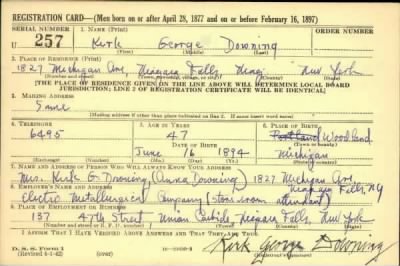 REGISTRATION CARD—(Men born on or after April 28, 1877 and on or before February 16, 1897)
SERIAL NUMBER
1. NAME (Print)
ORDER NUMBER
U 257
Kirk George Downing
(First) (Middle) (Last)
2. PLACE OF RESIDENCE (Print)
1827 Michigan Ave, Niagara Falls, Niag. New York
(Number and street) (Town, township, village, or city) (County) (State)
[THE PLACE OF RESIDENCE GIVEN ON THE LINE ABOVE WILL DETERMINE LOCAL BOARD
JURISDICTION; LINE 2 OF REGISTRATION CERTIFICATE WILL BE IDENTICAL]
3. MAILING ADDRESS
Same
[Mailing address if other than place indicated on line 2. If same insert word same]
4. TELEPHONE
5. AGE IN YEARS
6. PLACE OF BIRTH
6495
47
Portland Woodland
DATE OF BIRTH
(Town or county)
June 16 1894
Michigan
(Exchange) (Number)
(Mo.) (Day) (Yr.)
(State or country)
7. NAME AND ADDRESS OF PERSON WHO WILL ALWAYS KNOW YOUR ADDRESS
Mrs. Kirk G. Downing (Anna Downing) 1827 Michigan Ave,
Niagara Falls, NY
8. EMPLOYER'S NAME AND ADDRESS
Electro Metallurgical Company (store room attendant)
9. PLACE OF EMPLOYMENT OR BUSINESS
137 47th Street Union Carbide, Niagara Falls, New York
(Number and street or R. F. D. number) (Town) (County) (State)
I AFFIRM THAT I HAVE VERIFIED ABOVE ANSWERS AND THAT THEY ARE TRUE.
D. S. S. Form 1
(Revised 4-1-42) (over)
Kirk George Downing
(Registrant's signature)